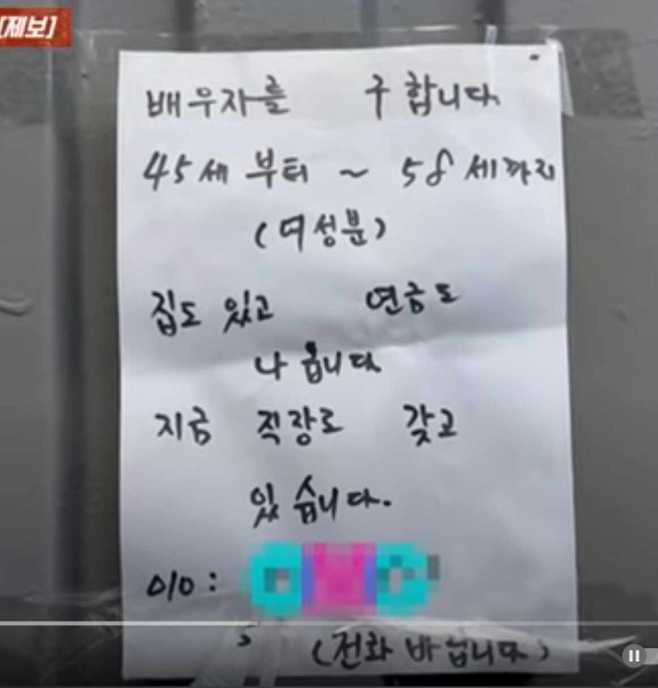 [제보]
배우자를 구합니다
45세 부터 ~ 58세까지
(여성분)
집도 있고 연금도
나옵니다
지금 직장도 갖고
있습니다.
010:
(전화 바랍니다)